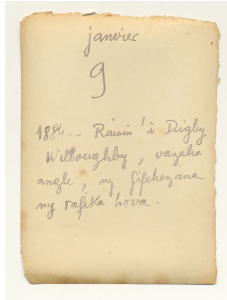 janvier
9
1884 - Raisin' i Digby
Willoughby, vazaha
angle, ny fifehezana
ny rafika hova.